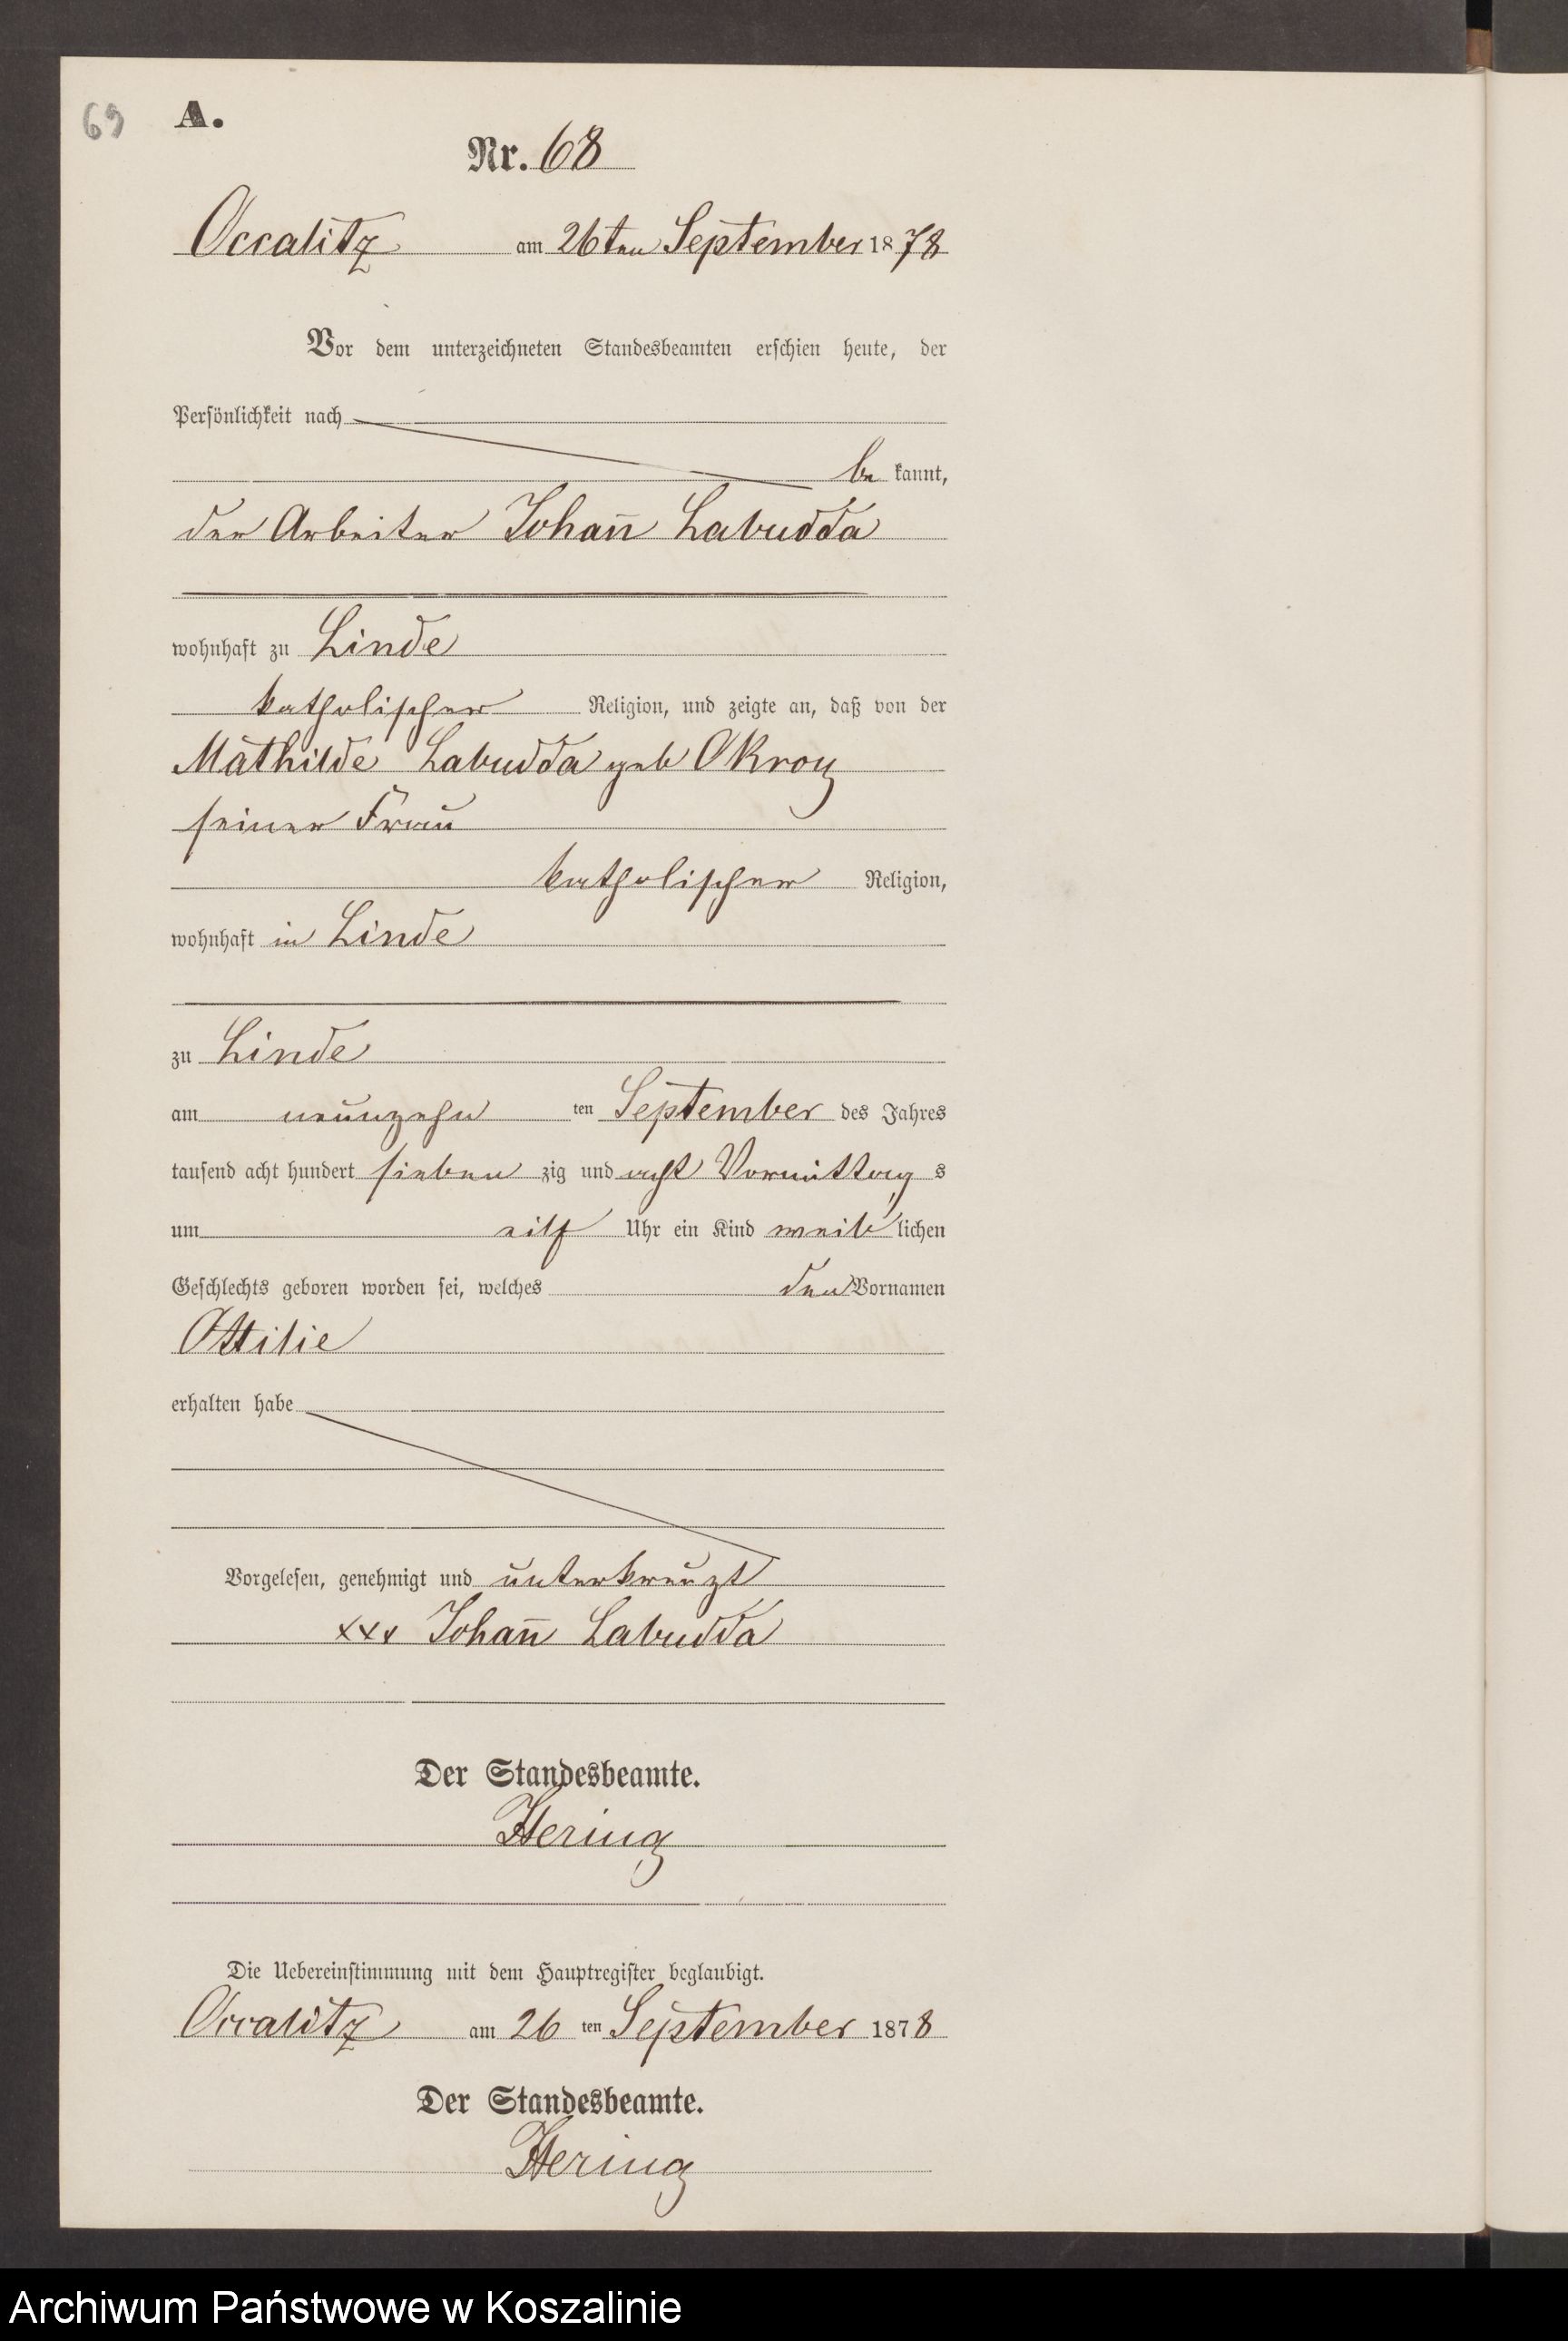 69
A.
Nr. 68
Occalitz am 26ten September 1878
Vor dem unterzeichneten Standesbeamten erschien heute, der
Persönlichkeit nach
be kannt,
der Arbeiter Johan̄ Labudda
wohnhaft zu Linde
katholischer Religion, und zeigte an, daß von der
Mathilde Labudda geb Okroy
seiner Frau
katholischer Religion,
wohnhaft in Linde
zu Linde
am neunzehn ten September des Jahres
tausend acht hundert sieben zig und acht Vormittag s
um eilf Uhr ein Kind weib lichen
Geschlechts geboren worden sei, welches den Vornamen
Ottilie
erhalten habe
Vorgelesen, genehmigt und unterkreuzt
xxx Johan̄ Labudda
Der Standesbeamte.
Hering
Die Uebereinstimmung mit dem Hauptregister beglaubigt.
Occalitz am 26 ten September 1878
Der Standesbeamte.
Hering
Archiwum Państwowe w Koszalinie